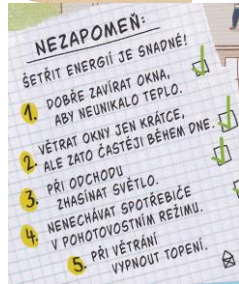 NEZAPOMEŇ:
ŠETŘIT ENERGIÍ JE SNADNÉ!
1. DOBŘE ZAVÍRAT OKNA,
ABY NEUNIKALO TEPLO.
2. VĚTRAT OKNY JEN KRÁTCE,
ALE ZATO ČASTĚJI BĚHEM DNE.
3. PŘI ODCHODU
ZHASÍNAT SVĚTLO.
4. NENECHÁVAT SPOTŘEBIČE
V POHOTOVOSTNÍM REŽIMU.
5. PŘI VĚTRÁNÍ
VYPNOUT TOPENÍ.